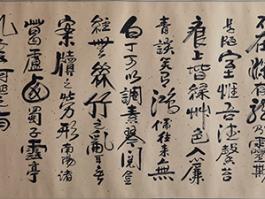 是陋室惟吾德馨苔
痕上階綠艸色入簾
青談笑有鴻儒往來無
白丁可以調素琴閱金
經無絲竹之亂耳無
案牘之勞形南陽諸
葛廬西蜀子雲亭